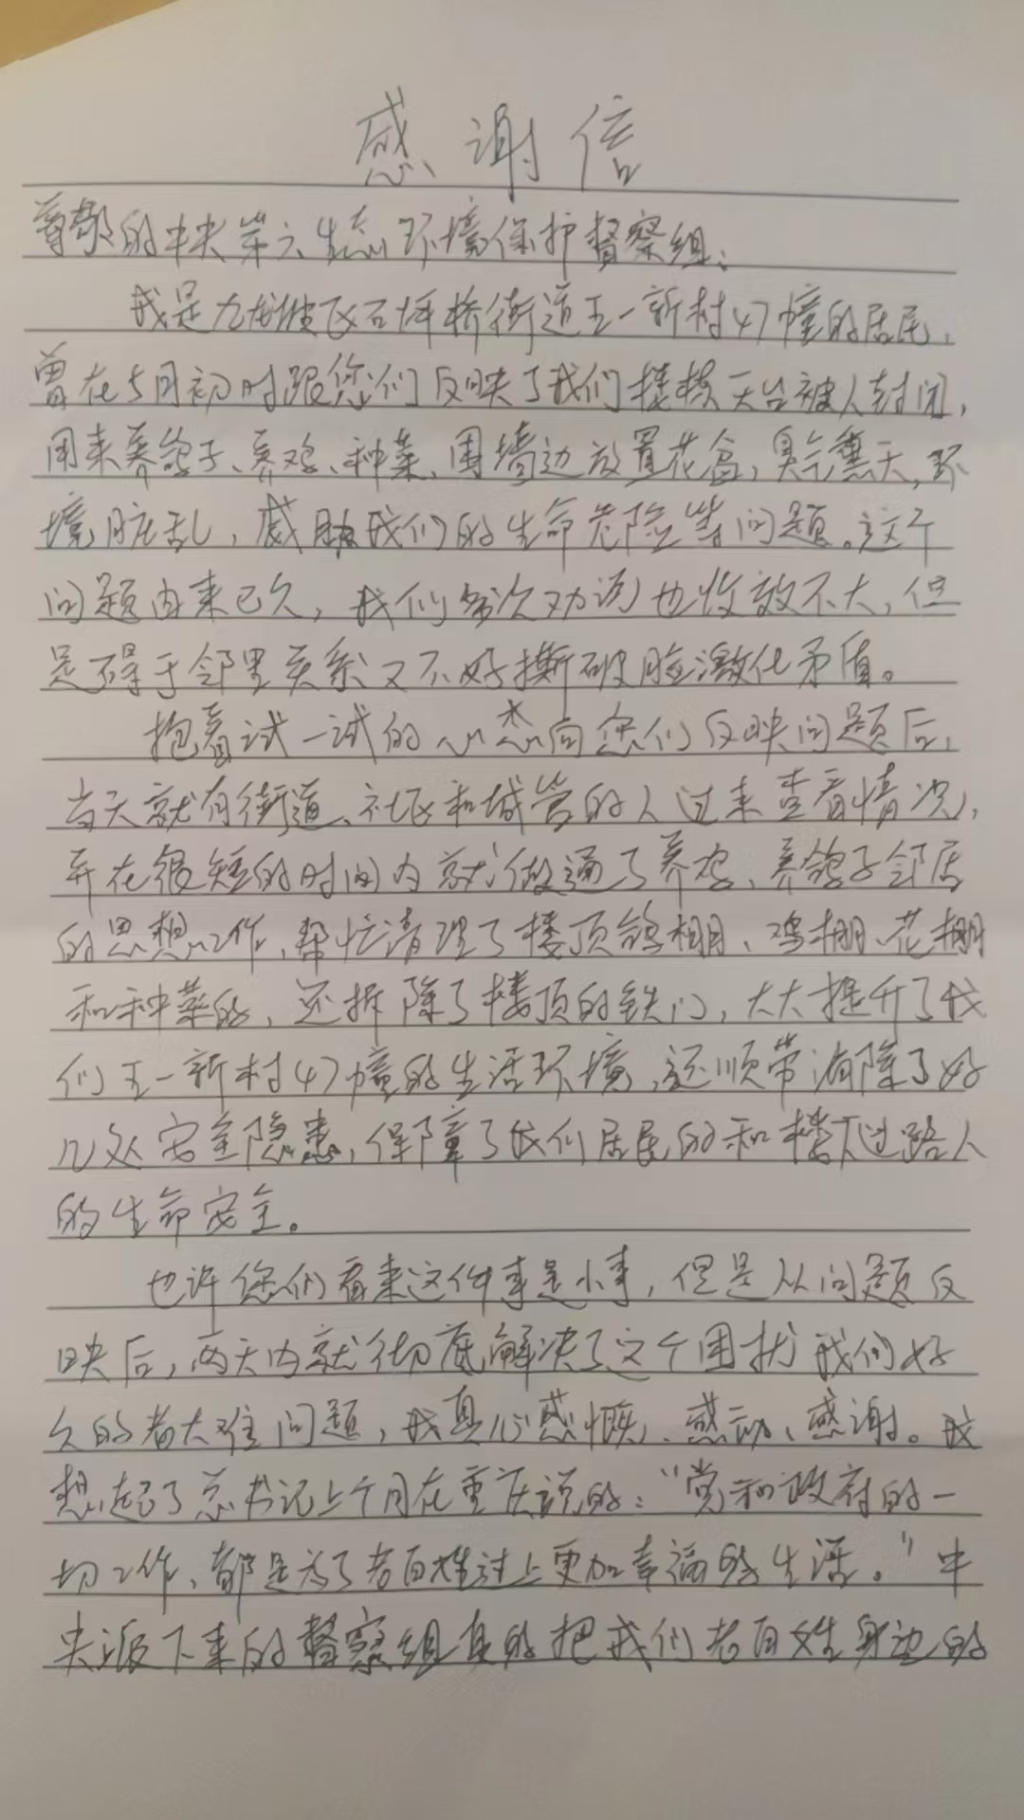 感谢信
尊敬的中央第六生态环境保护督察组：
我是九龙坡区石坪桥街道五一新村47幢的居民，
曾在5月初时跟您们反映了我们楼楼天台被人封闭，
用来养鸽子、养鸡、种菜、围墙边放置花盆，臭气熏天，环
境脏乱，威胁我们的生命危险等问题。这个
问题由来已久，我们多次劝说也收效不大，但
是碍于邻里关系又不好撕破脸激化矛盾。
抱着试一试的心态向您们反映问题后，
当天就有街道、社区和城管的人过来查看情况，
并在很短的时间内就做通了养鸡、养鸽子邻居
的思想工作，帮忙清理了楼顶鸽棚、鸡棚、花棚
和种菜的，还拆除了楼顶的铁门，大大提升了我
们五一新村47幢的生活环境，还顺带消除了好
几处安全隐患，保障了我们居民的和楼下过路人
的生命安全。
也许您们看来这件事是小事，但是从问题反
映后，两天内就彻底解决了这个困扰我们好
久的老大难问题，我真心感慨、感动、感谢。我
想起了总书记上个月在重庆说的：“党和政府的一
切工作，都是为了老百姓过上更加幸福的生活。”中
央派下来的督察组真的把我们老百姓身边的